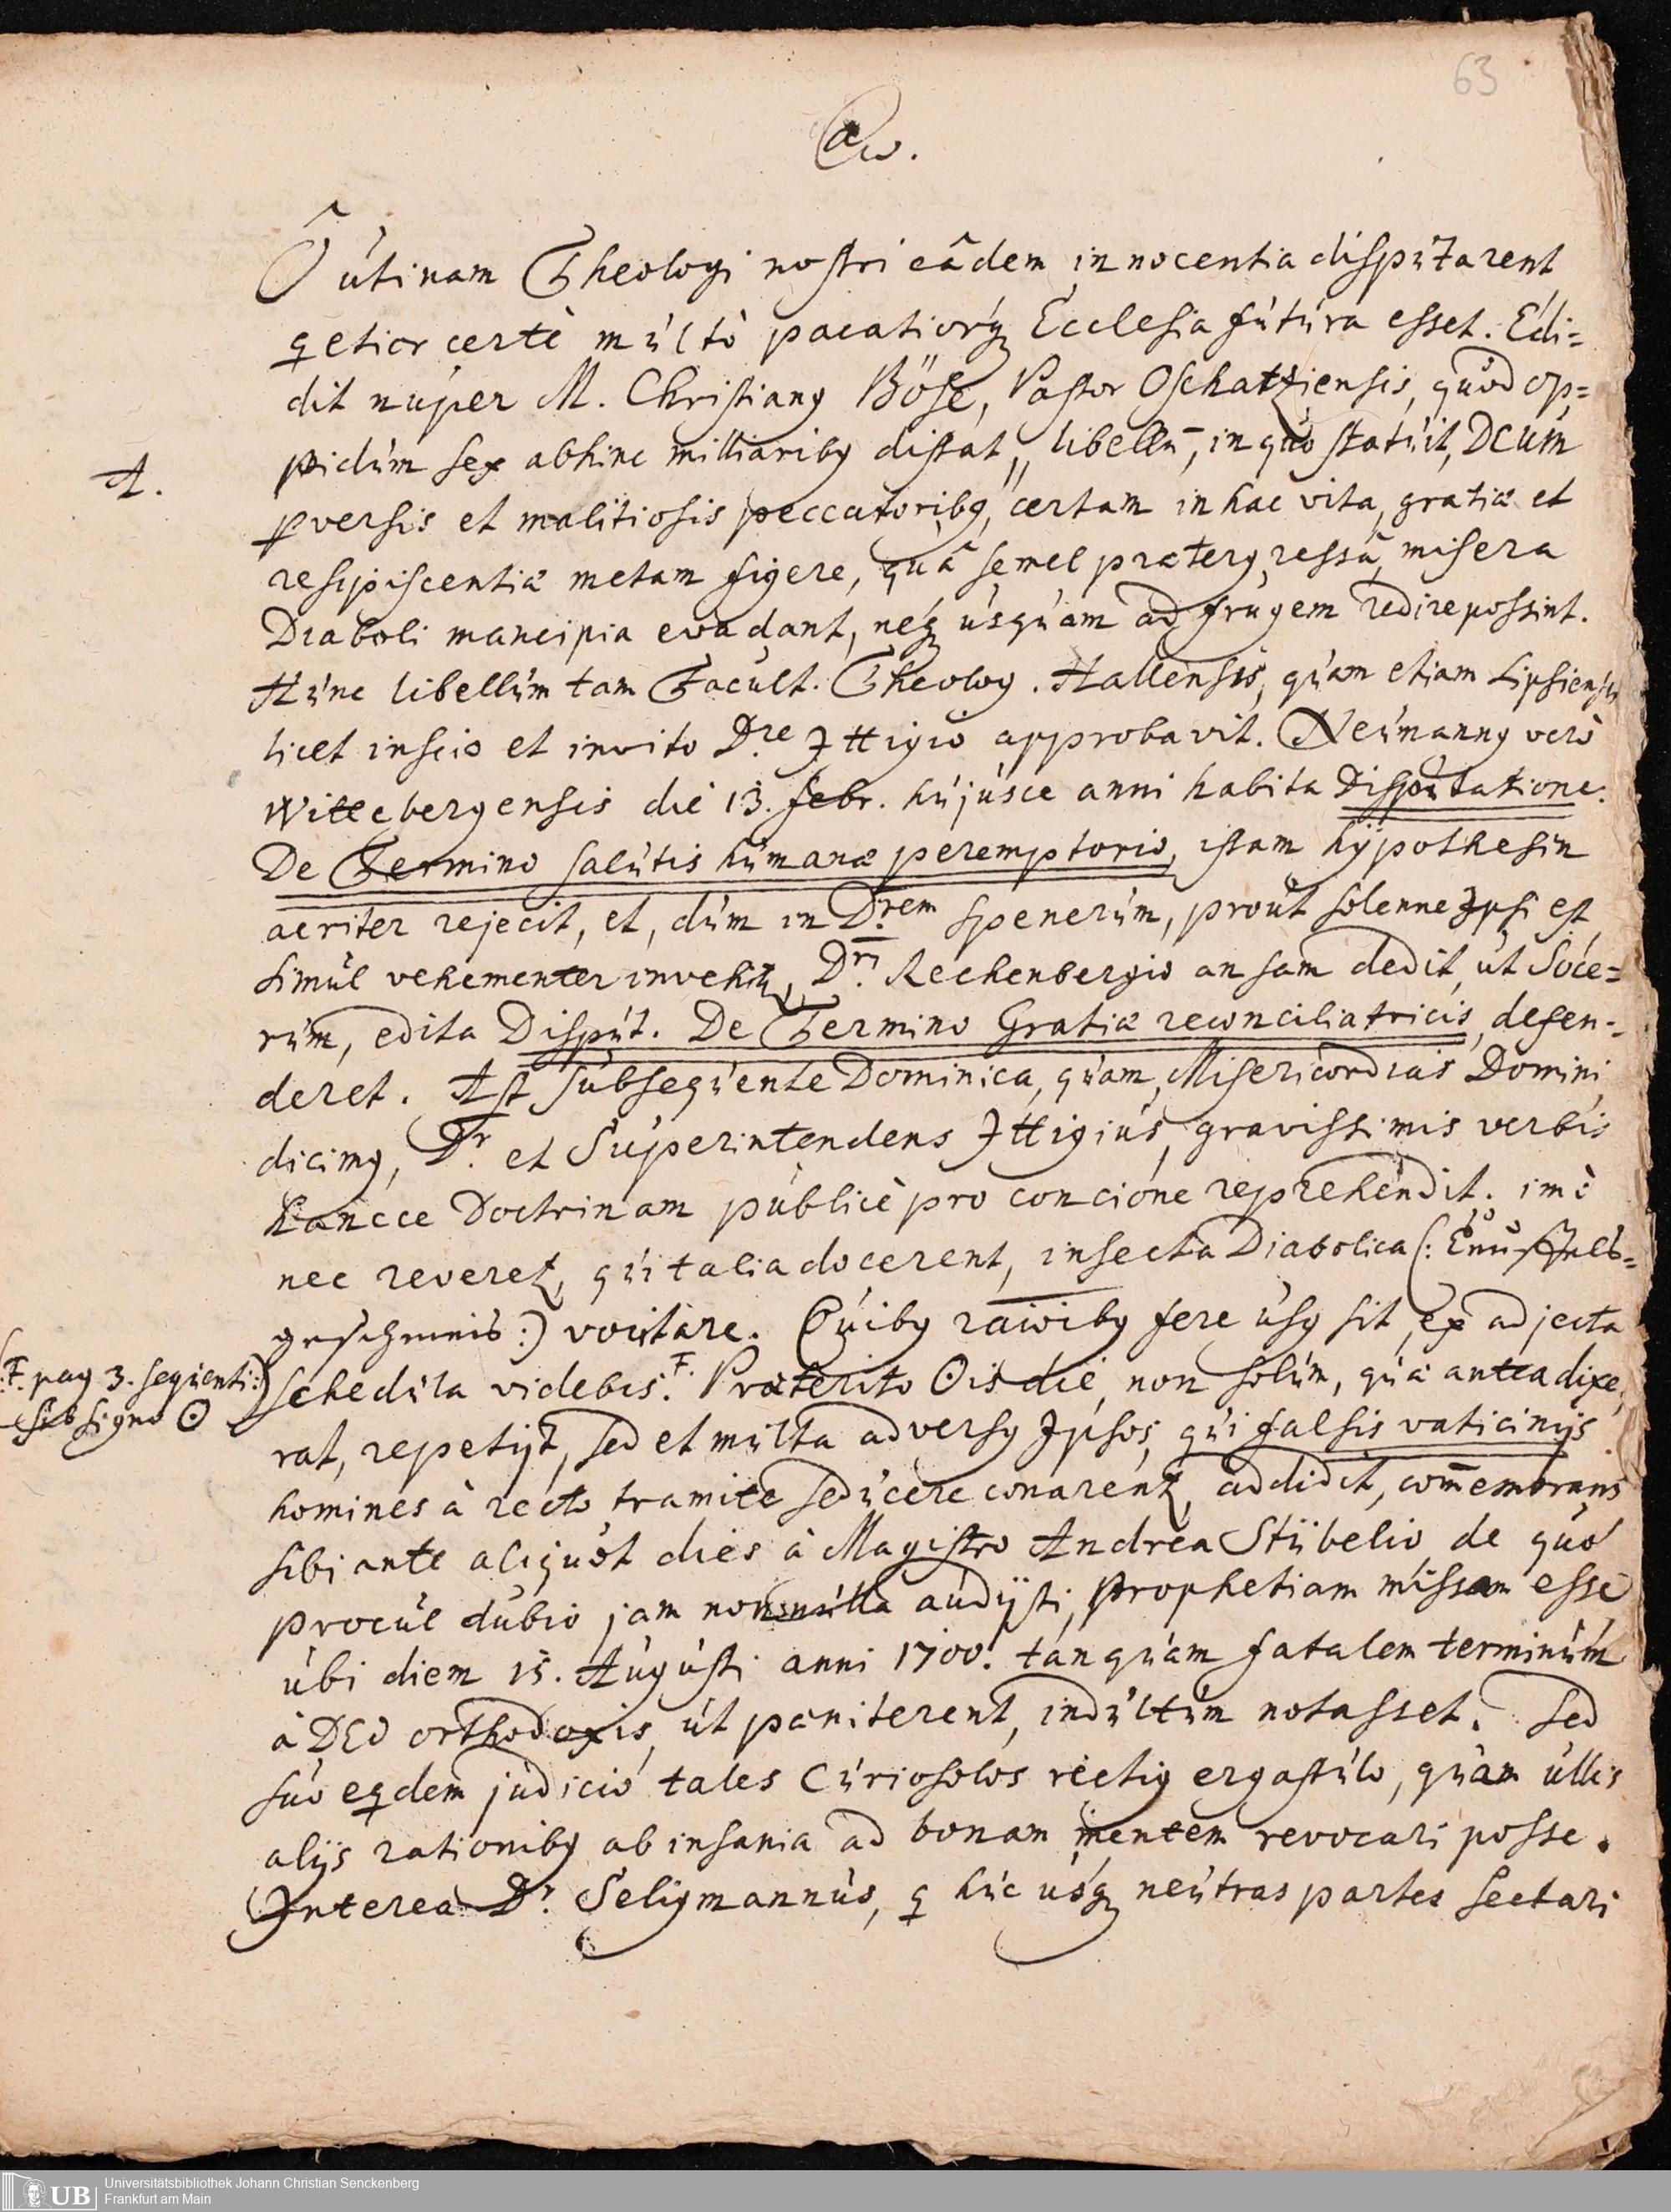 63
Ô utinam Theologi nostri eâdem innocentia disputarent
qetior certè multò pacatiorq; Ecclesia futura esset. Edi=
dit nuper M. Christianq Böse, Pastor Oschatziensis, quòd op=
pidum sex abhinc milliaribq distat, libellū, in quo statuit, DEUM
A.
pversis et malitiosis peccatoribq, certam in hac vita, gratiæ et
resipiscentiæ metam figere, quâ semel prætergressâ, misera
Diaboli mancipia evadant, neq; usquam ad frugem redire possint.
Hunc libellum tam Facult. Theolog. Hallensis, quam etiam Lipsiensis
licet inscio et invito D.re Ittigio approbavit. Neumannq verò
Wittebergensis die 13. febr. hujusce anni habita Disputatione.
De Termino salutis humanæ peremptorio, istam hypothesin
acriter rejecit, et, dum in D.rem Spenerum, prout solenne Ipsi est
simul vehementer invehit, D.ri Rechenbergio ansam dedit, ut Soce=
rum, edita Disput. De Termino Gratiæ reconciliatricis, defen=
deret. Ast subsequente Dominica, quam, Misericordias Domini,
dicimq, D.r et Superintendens Ittigius, gravissimis verbis
hancce Doctrinam publicè pro concione reprehendit. imò
nec veret, qui talia docerent, insecta Diabolica (: Teuffels=
geschmeis :) vocitare. Quibq
fere usq sit, ex adjecta
(:F. pag 3. sequenti:)
sub signo ☉
schedula videbis. F. Præterito ☉is die, non solùm, quæ antea dixe,
rat, repetijt, sed et multa adversq Ipsos, qui falsis vaticinijs
homines à recto tramite seducere conarent, addidit, com̄emorans
sibi ante aliquot dies à Magistro Andrea Stübelio, de quo
procul dubio jam nonnulla audijsti, Prophetiam missam esse
ubi diem 15. Augusti anni 1700. tanquam fatalem terminum
à DEO orthodoxis, ut pœniterent, indultum notasset. Sed
suo eqdem judicio tales Curiosolos rectiq ergastulo, quàm ullis
alijs rationibq ab insania ad bonam mentem revocari posse.
Interea D.r Seligmannus, q huc usq; neutras partes sectari
Universitätsbibliothek Johann Christian Senckenberg
Frankfurt am Main
UB